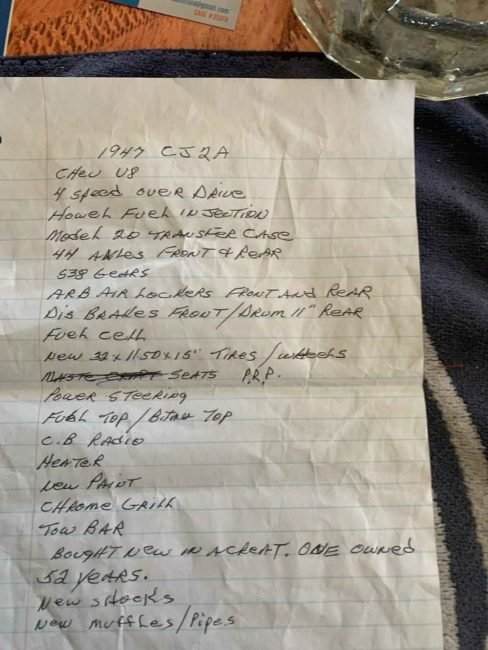 1947 CJ2A
CHev V8
4 speed over Drive
Howeh Fueh INJection
Model 20 TRANSFER CASE
44 AXLes FRONT & ReAR
538 GeARS
ARB AIR LOCKeRS FRONT AND ReAR
Dis BRAKes FRONT/DRUM 11" ReAR
Fueh ceLL
New 32 x 11.50 x 15" TiRes/wheels
SeATS P.R.P.
POWeR STeeRiNG
FuLL TOP/ TOP
C.B RADiO
HeATeR
New PAiNT
CHRome GRiLL
TOW BAR
BOUGHT New IN A CReAT. ONE OWNeD
52 YeARS.
New SHOCKS
New muffLes/PiPes